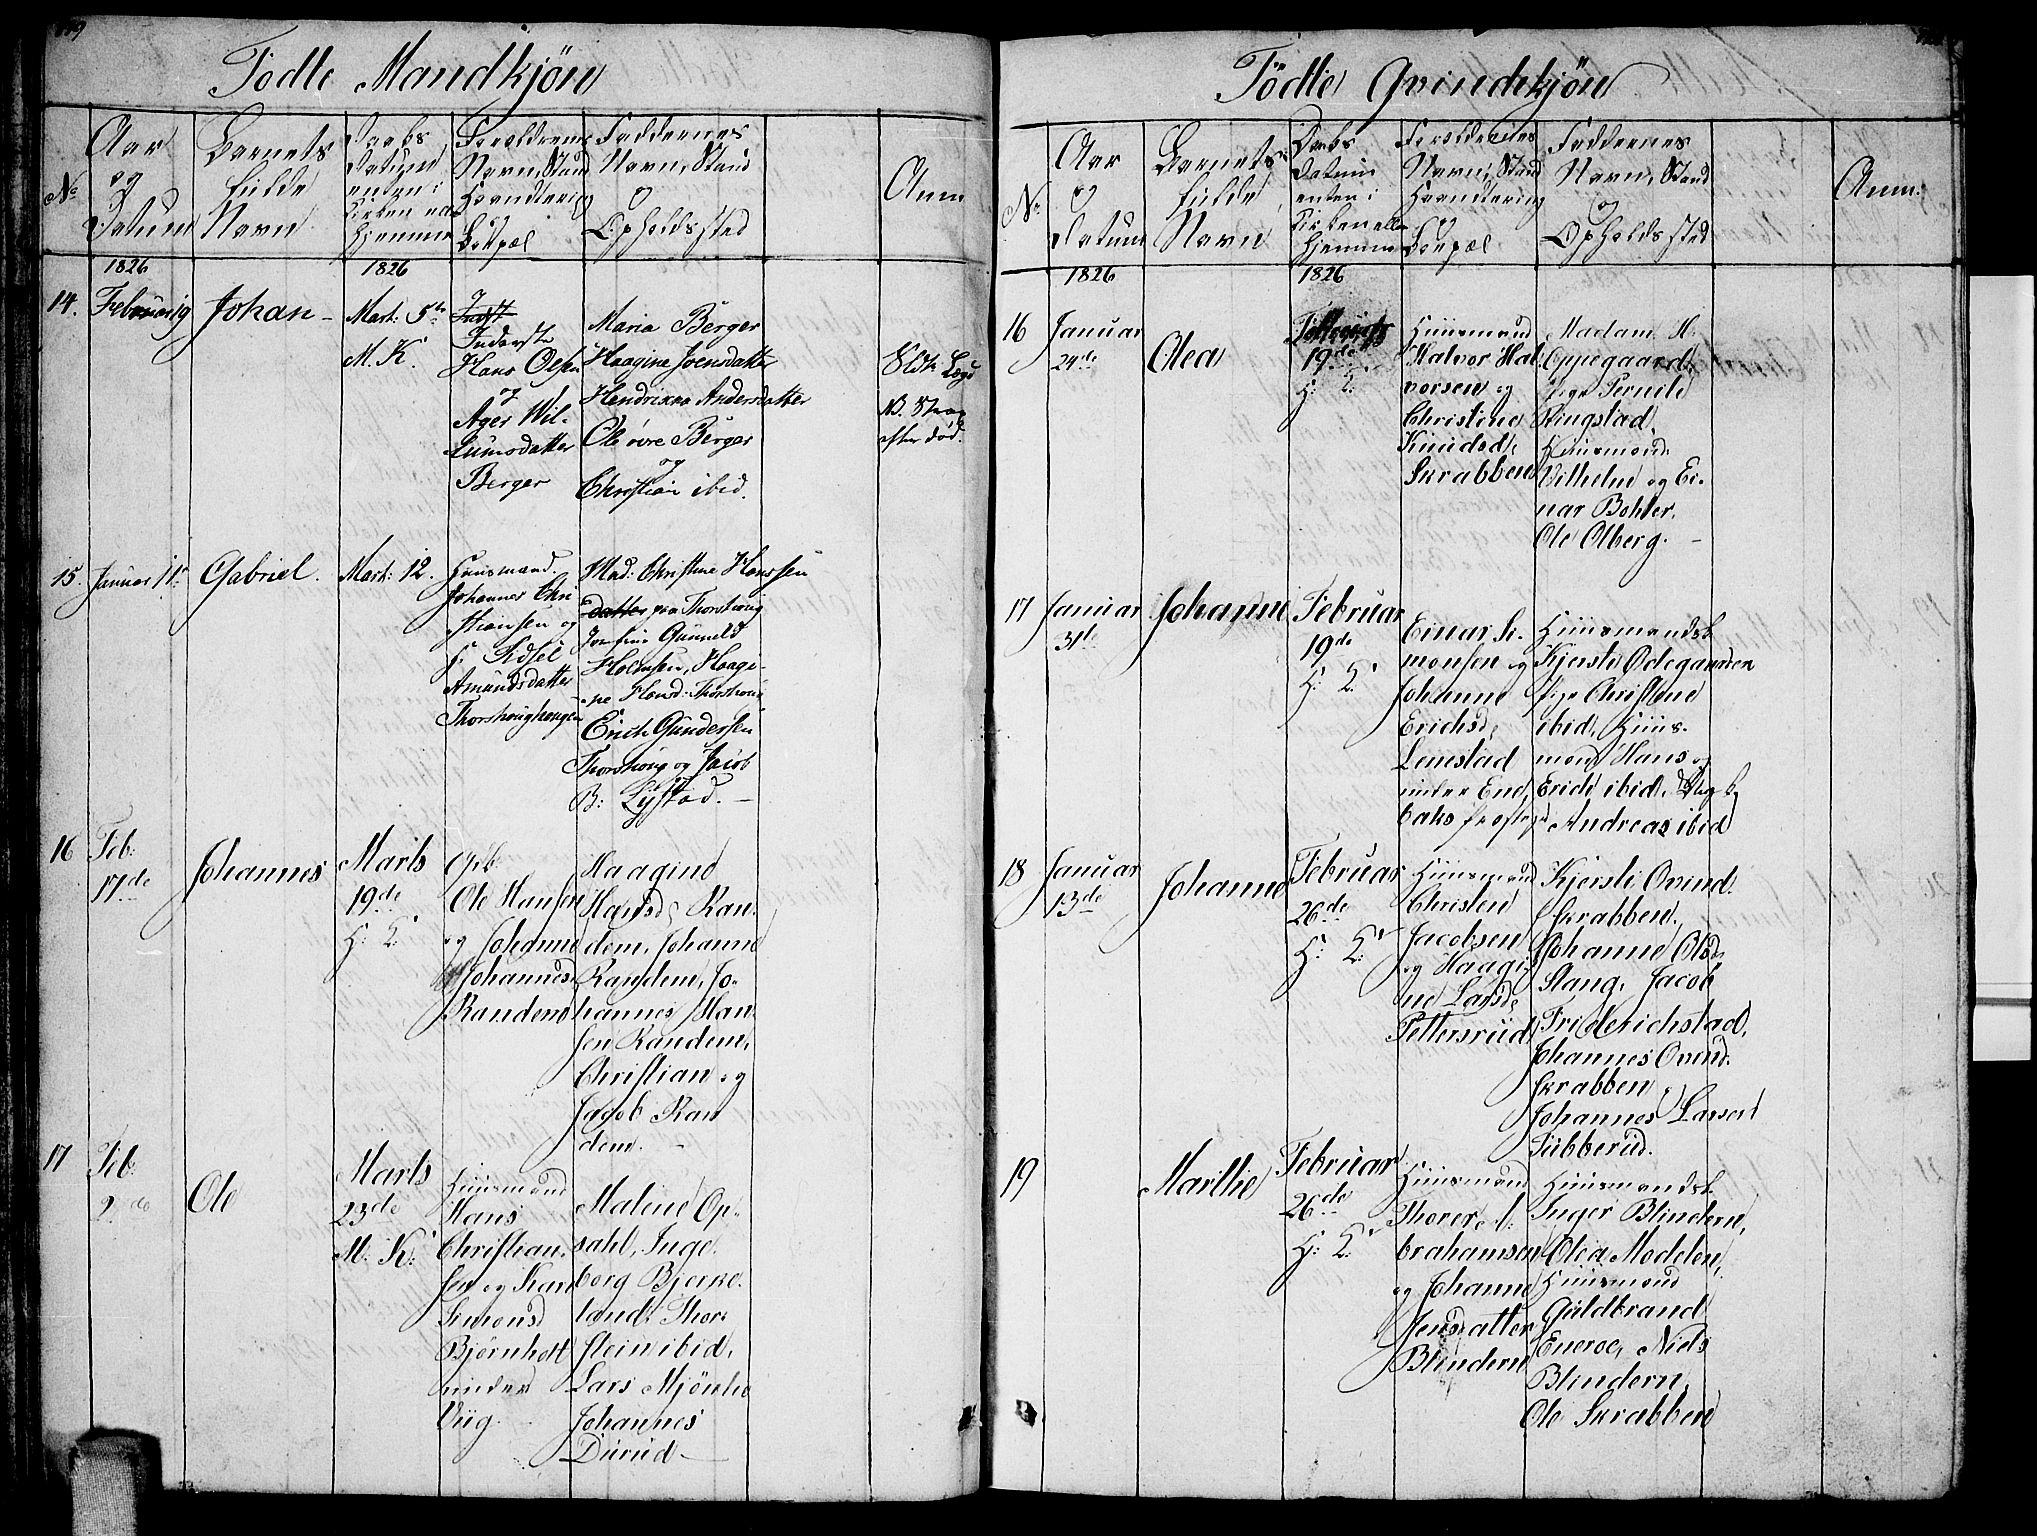 Födte Mandkjön
No
Aar
og
Datum
Barnets
fulde
Navn
Daabs
Datum
enten i
Kirken
Hjemme
Forældrenes
Navn, Stand
Haandtering
og
Bopæl
Faddernes
Navn, Stand
og
Opholdssted
Anm
1826
1826
14.
Februar 19
Johan
Mart: 5te
M. K.
Inderste
Hans Olsen
og
Ager Wil-
lumsdatter
Berger
Maria Berger
Haagine Joensdatter
Hendrikka Andersdatter
Ole övre Berger
og
Christian ibid.
Bldt. Lægd
efter död.
15.
Januar 11te
Gabriel.
Mart: 12.
Huusmand.
Johannes Chri
stiansen og
H. Sidsel
Amundsdatter
Thorshoughougen
Mad: Christine Hanssen
datter paa Thorshoug
Jomfrue Gunneld
Holmsen, Haagi-
ne Hansd: Thorshoug
Erich Gundersen
Thorshoug og Jacob
B: Lystad.
16
Feb:
17de
Johannes
Marts
19de
H: K:
Grb:
Ole Hansen
og Johanne
Johannesd
Randem
Haagine
Hansd, Ran-
dem, Johanne
Randem, Jo-
hannes Han-
sen Randem,
Christian og
Jacob Ran
dem.
17
Feb:
2de
Ole
Marts
23de
M: K:
Huusmand
Hans
Christian-
sen og Kari
Simonsd
Björnholt
under
Viig.
Malene Op-
sahl, Inge-
borg Bjerke-
land, Thor-
stein ibid,
Lars Mjönlie
Johannes
Durud
Födte Qvindekjön
No
Aar
og
Datum
Barnets
fulde
Navn
Daabs
Datum
enten i
Kirken eller
Hjemme
Forældrenes
Navn, Stand
Haandtering
og
Bopæl
Faddernes
Navn, Stand
og
Opholdssted
Anm:
1826
1826
16
Januar
24de
Olea
19de
H: K:
Huusmand
Halvor Hal-
vorsen og
Christine
Knudsd,
Skrabben
Madam H.
Oppegaard,
Pige Pernile
Ringstad,
Huusmand
Vilhelm og Ei-
nar Bohler,
Ole Olberg.
17
Januar
31te
Johanne
Februar
19de
H: K:
Einar Si-
monsen og
Johanne
Erichsd,
Lenestad
under End
Huusmandsk.
Kjersti Ödegaarden
Pige Christine
ibid, Huus-
mand Hans og
Erich ibid,
Andreas ibid
18
Januar
13de
Johanne
Februar
26de
H: K:
Huusmand
Christen
Jacobsen
og Haagi-
ne Larsd,
Pettersrud
Kjersti Ovind.
Skrabben,
Johanne Olsd,
Stang, Jacob
Friderichstad,
Johannes Ovind.
Skrabben
Johannes Larsen
Subberud.
19
Marthe
Februar
26de
H: K:
Huusmand
Thorer A-
brahamsen
og Johanne
Jensdatter
Blindern
Huusmandsk.
Inger Blindern,
Olea Modelen,
Huusmand
Guldbrand
Eneroe, Niels
Blindern,
Ole Skrabben